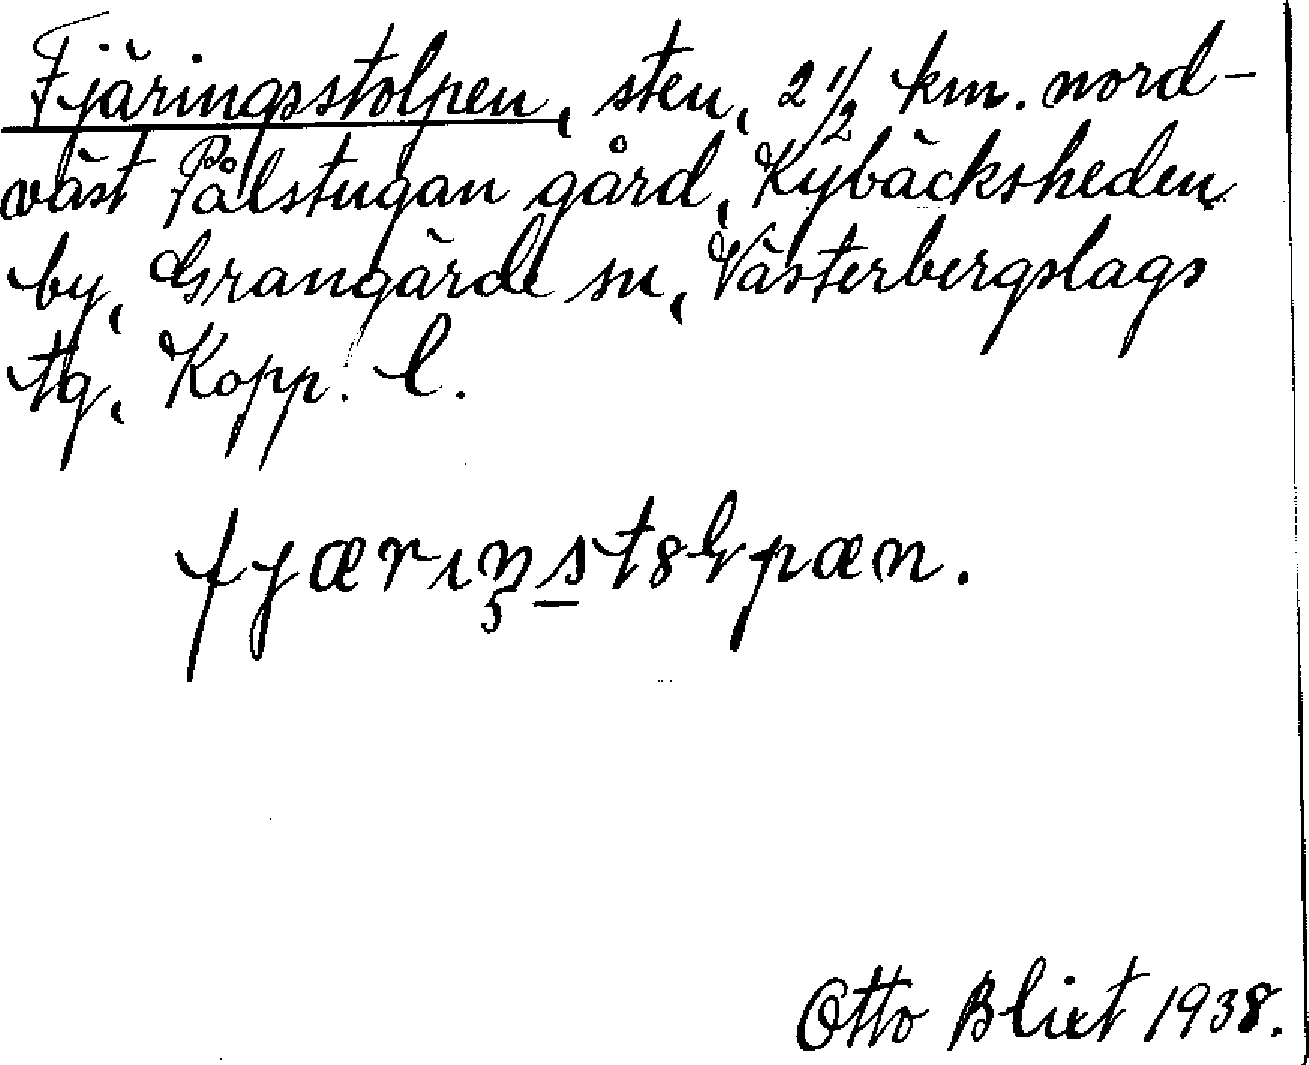 Fjäringsstolpen, sten, 2 1/2 km. nord-
väst Pålstugan gård, Kybäcksheden
by, Grangärde sn, Västerbergslags
tg, Kopp. l.
fjæriŋst8ɽpæn.
Otto Blixt 1938.